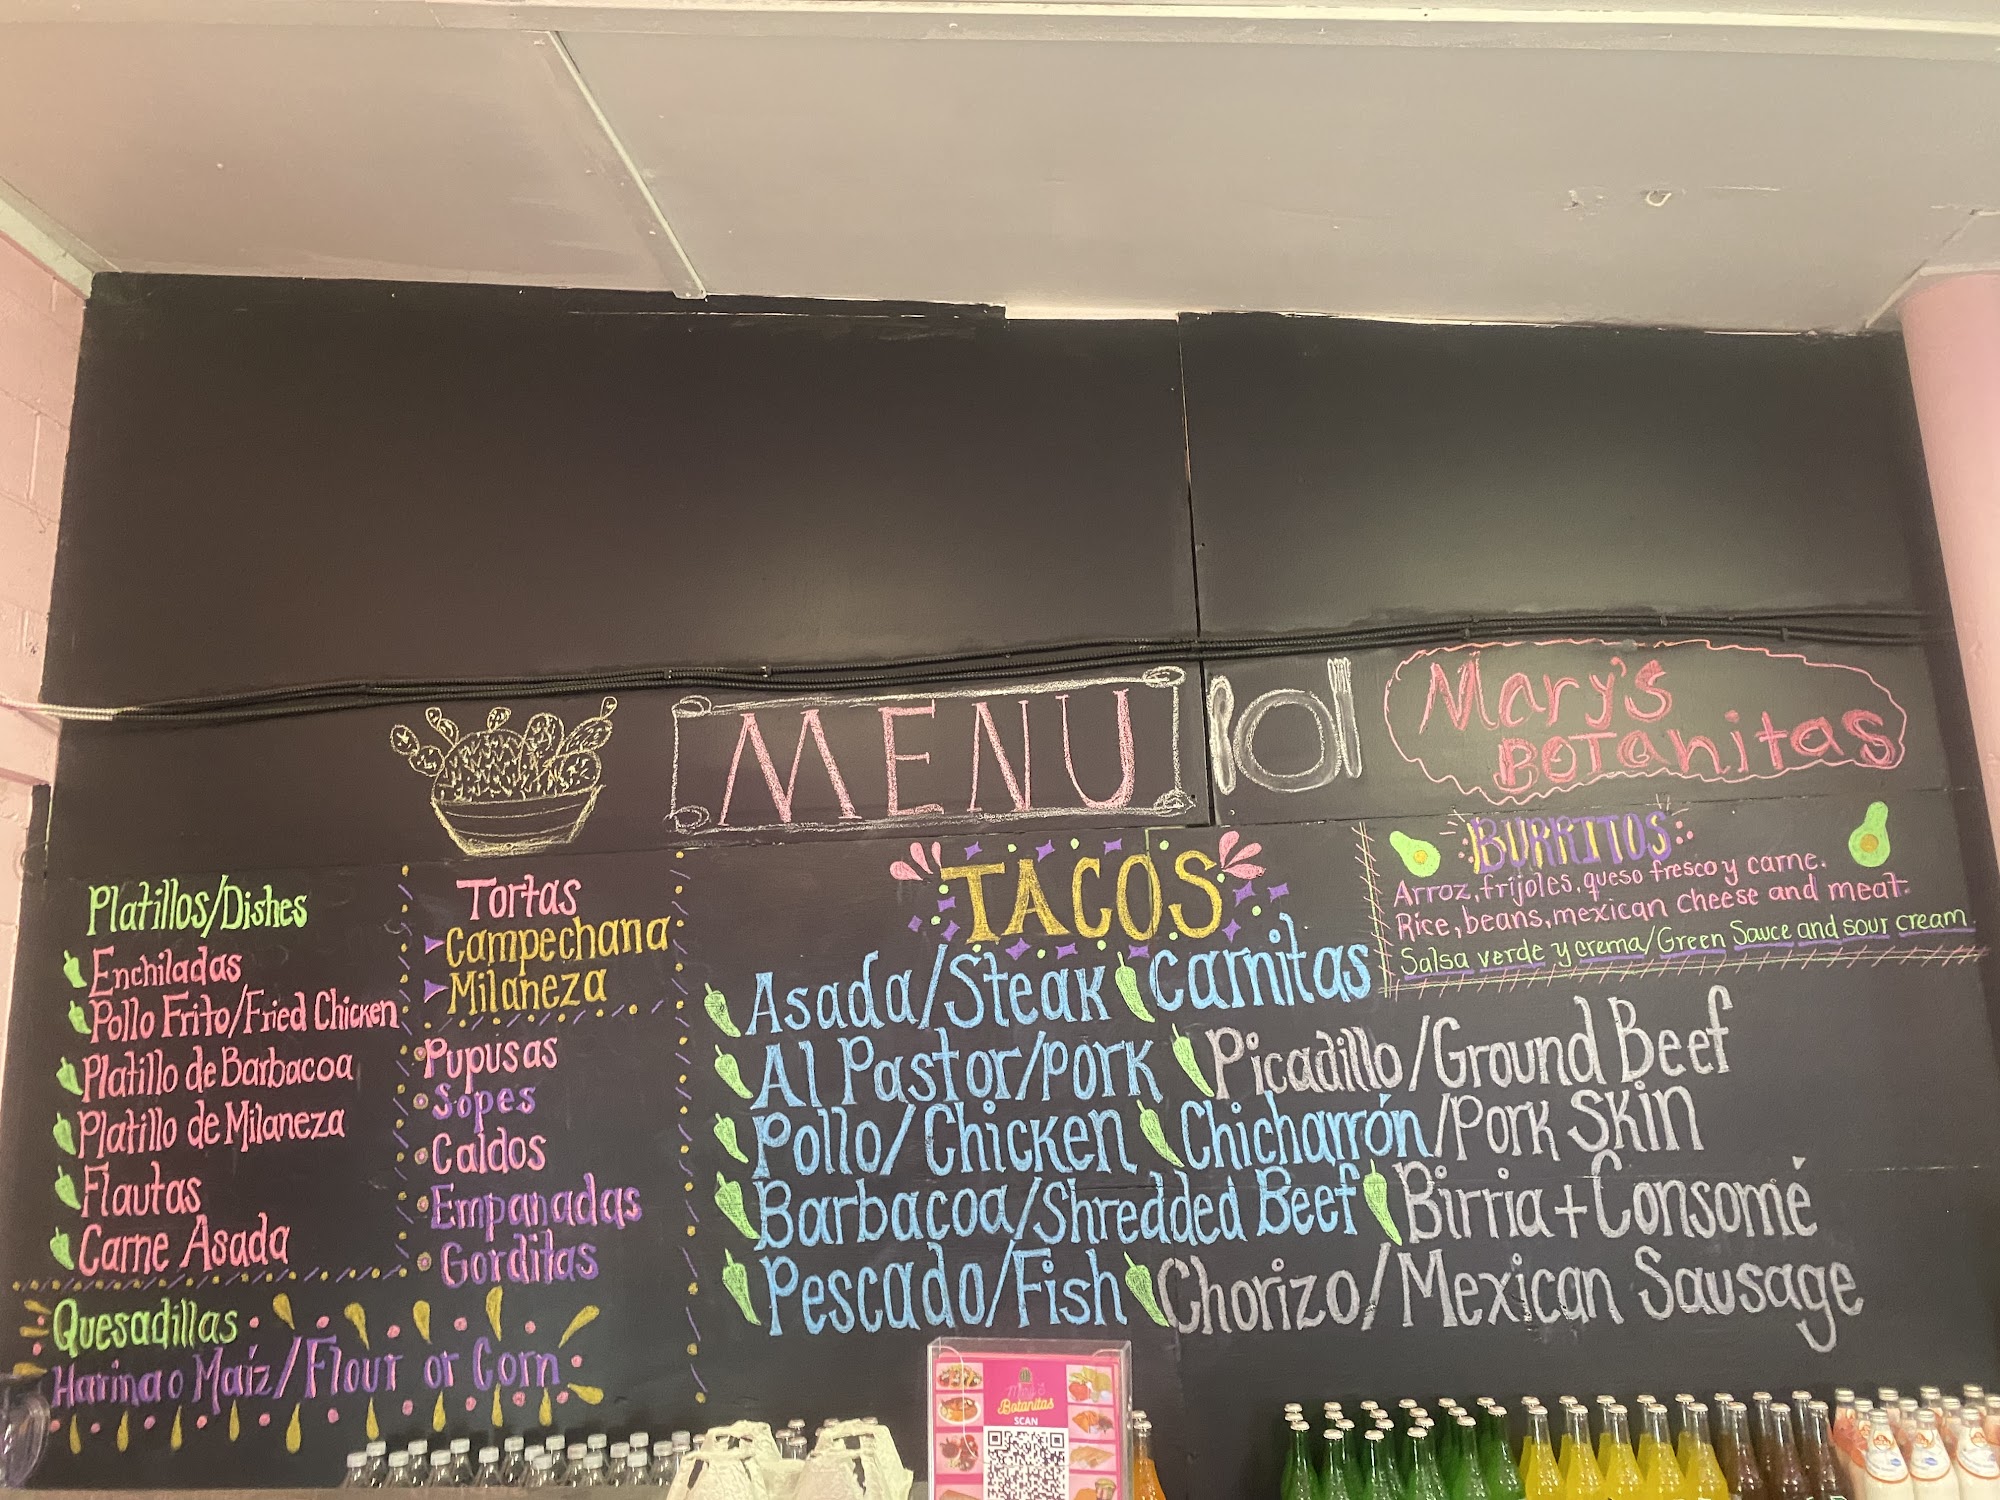 MENU
Mary's
BOTanitas
Platillos/Dishes
Enchiladas
Pollo Frito/Fried Chicken
Platillo de Barbacoa
Platillo de Milaneza
Flautas
Carne Asada
Quesadillas
Harina o Maíz/Flour or Corn
Tortas
Campechana
Milaneza
Pupusas
Sopes
Caldos
Empanadas
Gorditas
TACOS
Asada/Steak
Carnitas
Al Pastor/pork
Picadillo/Ground Beef
Pollo/Chicken
Chicharrón/Pork Skin
Barbacoa/Shredded Beef
Birria+Consomé
Pescado/Fish
Chorizo/Mexican Sausage
BURRITOS
Arroz, frijoles, queso fresco y carne.
Rice, beans, mexican cheese and meat.
Salsa verde y crema/Green Sauce and sour cream.
Botanitas
SCAN